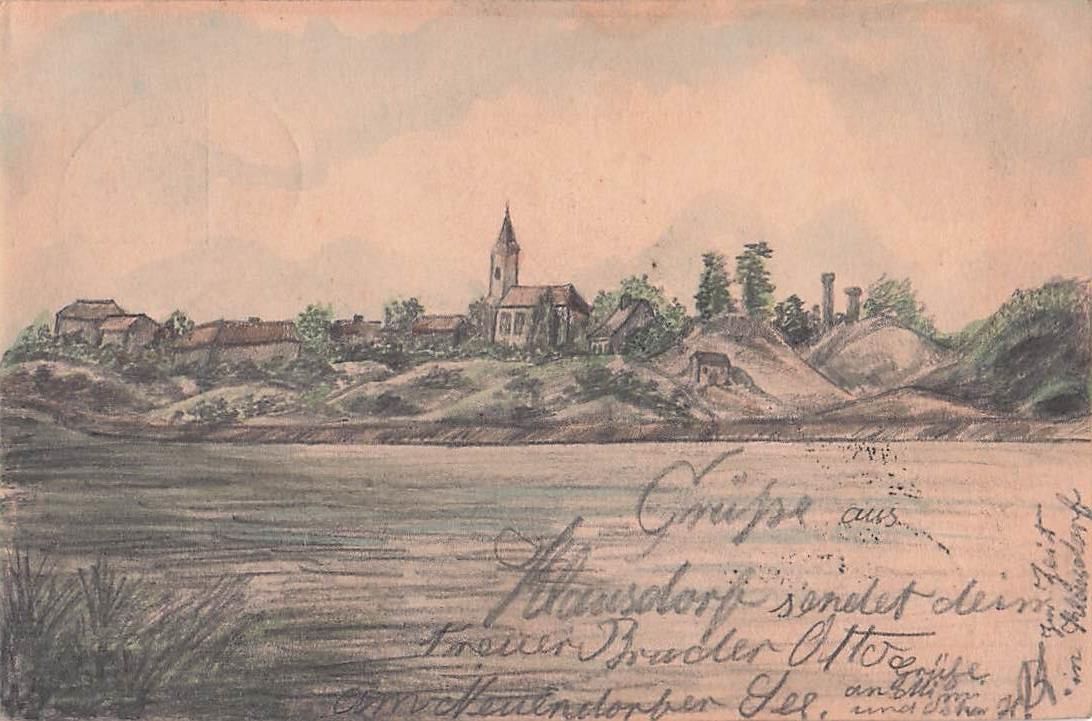 Grüße aus
Klausdorf sendet dein
treuer Bruder Otto
am Neuendorfer See.
Grüße
an
und
zur Zeit
in